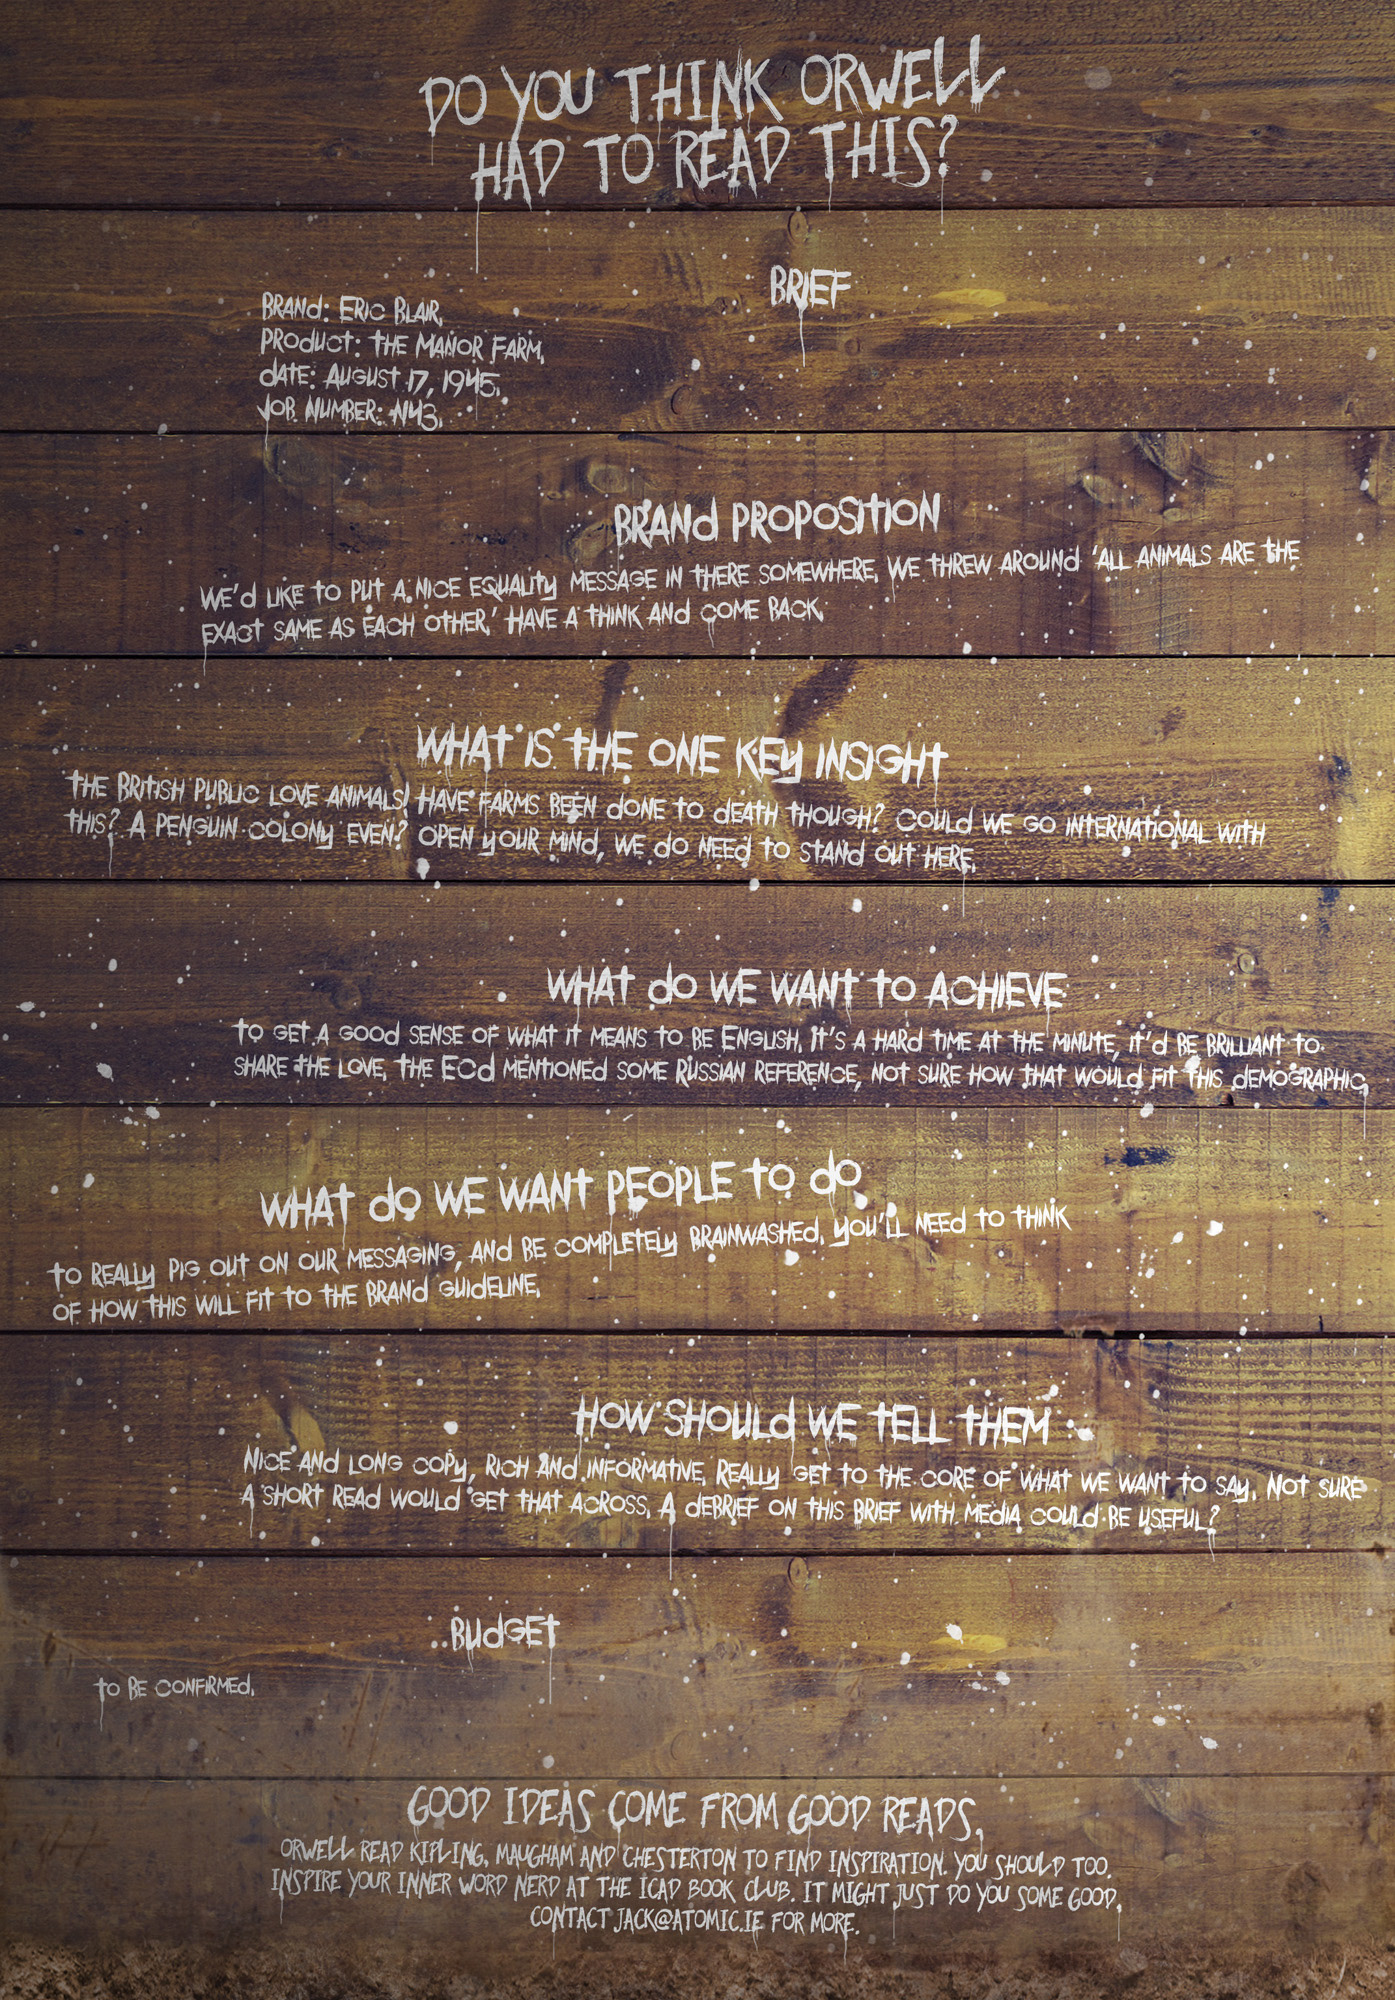 DO YOU THINK ORWELL
HAD TO READ THIS?
BRIEF
BRAND: ERIC BLAIR.
PRODUCT: THE MANOR FARM.
DATE: AUGUST 17, 1945.
JOB NUMBER: N43.
BRAND PROPOSITION
WE'D LIKE TO PUT A NICE EQUALITY MESSAGE IN THERE SOMEWHERE. WE THREW AROUND 'ALL ANIMALS ARE THE
EXACT SAME AS EACH OTHER.' HAVE A THINK AND COME BACK.
WHAT IS THE ONE KEY INSIGHT
THE BRITISH PUBLIC LOVE ANIMALS! HAVE FARMS BEEN DONE TO DEATH THOUGH? COULD WE GO INTERNATIONAL WITH
THIS? A PENGUIN COLONY EVEN? OPEN YOUR MIND, WE DO NEED TO STAND OUT HERE.
WHAT DO WE WANT TO ACHIEVE
TO GET A GOOD SENSE OF WHAT IT MEANS TO BE ENGLISH. IT'S A HARD TIME AT THE MINUTE, IT'D BE BRILLIANT TO
SHARE THE LOVE. THE ECD MENTIONED SOME RUSSIAN REFERENCE, NOT SURE HOW THAT WOULD FIT THIS DEMOGRAPHIC.
WHAT DO WE WANT PEOPLE TO DO
TO REALLY PIG OUT ON OUR MESSAGING, AND BE COMPLETELY BRAINWASHED. YOU'LL NEED TO THINK
OF HOW THIS WILL FIT TO THE BRAND GUIDELINE.
HOW SHOULD WE TELL THEM
NICE AND LONG COPY, RICH AND INFORMATIVE. REALLY GET TO THE CORE OF WHAT WE WANT TO SAY. NOT SURE
A SHORT READ WOULD GET THAT ACROSS. A DEBRIEF ON THIS BRIEF WITH MEDIA COULD BE USEFUL?
BUDGET
TO BE CONFIRMED.
GOOD IDEAS COME FROM GOOD READS.
ORWELL READ KIPLING, MAUGHAM AND CHESTERTON TO FIND INSPIRATION. YOU SHOULD TOO.
INSPIRE YOUR INNER WORD NERD AT THE ICAD BOOK CLUB. IT MIGHT JUST DO YOU SOME GOOD.
CONTACT JACK@ATOMIC.IE FOR MORE.